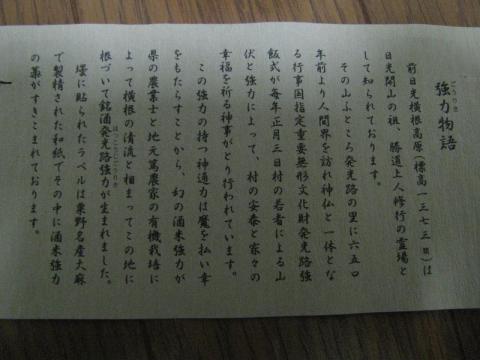 強力物語
ごうりき
前日光横根高原(標高一三七三㍍)は
日光開山の祖、勝道上人修行の霊場と
して知られております。
その山ふところ発光路の里に六五〇
年前より人間界を訪れ神仏と一体とな
る行事国指定重要無形文化財発光路強
飯式が毎年正月三日村の若者による山
伏と強力によって、村の安泰と家々の
幸福を祈る神事がとり行われています。
この強力の持つ神通力は魔を払い幸
をもたらすことから、幻の酒米強力が
県の農業士と地元篤農家の有機栽培に
よって横根の清流と相まってこの地に
根づいて銘酒発光路強力が生まれました。
はっこうじごうりき
壜に貼られたラベルは粟野名産大麻
で製精された和紙でその中に酒米強力
の藁がすきこまれております。